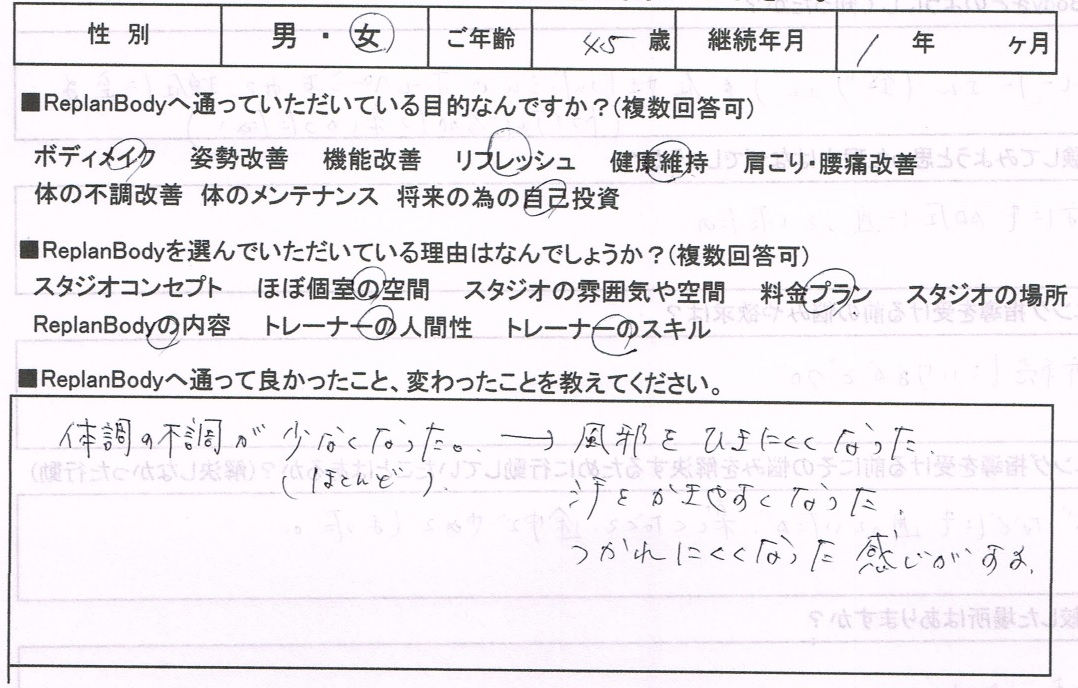 性別 男・女 ご年齢 45 歳 継続年月 1 年 ヶ月
■ReplanBodyへ通っていただいている目的なんですか?(複数回答可)
ボディメイク 姿勢改善 機能改善 リフレッシュ 健康維持 肩こり・腰痛改善
体の不調改善 体のメンテナンス 将来の為の自己投資
■ReplanBodyを選んでいただいている理由はなんでしょうか?(複数回答可)
スタジオコンセプト ほぼ個室の空間 スタジオの雰囲気や空間 料金プラン スタジオの場所
ReplanBodyの内容 トレーナーの人間性 トレーナーのスキル
■ReplanBodyへ通って良かったこと、変わったことを教えてください。
体調の不調が少なくなった。→風邪をひきにくくなった.
(ほとんど). 汗をかきやすくなった.
つかれにくくなった感じがする.